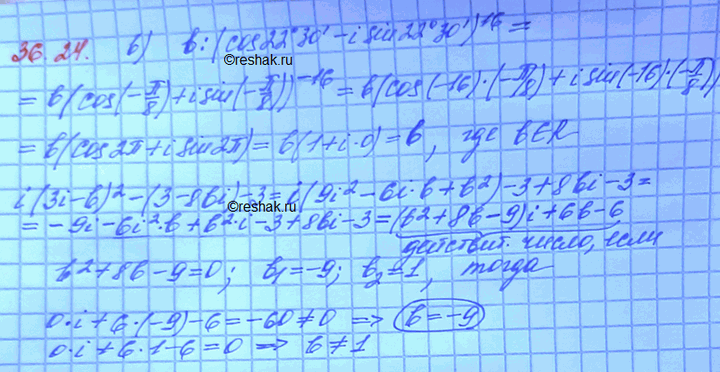 36.24. в) b:(cos22°30' - i sin22°30')¹⁶ =
©reshak.ru
= b(cos(-π/8)+i sin(-π/8))⁻¹⁶ = b(cos(-16)·(-π/8)+i sin(-16)·(-π/8))
= b(cos2π+i sin2π) = b(1+i·0) = b, где b∈R
i(3i-b)²-(3-8bi)-3=i(9i²-6i·b+b²)-3+8bi-3=
©reshak.ru
= -9i-6i²·b+b²·i-3+8bi-3=(b²+8b-9)i+6b-6
действит. число, если
b²+8b-9=0; b₁=-9; b₂=1, тогда
0·i+6·(-9)-6=-60≠0 => b=-9
0·i+6·1-6=0 => b≠1